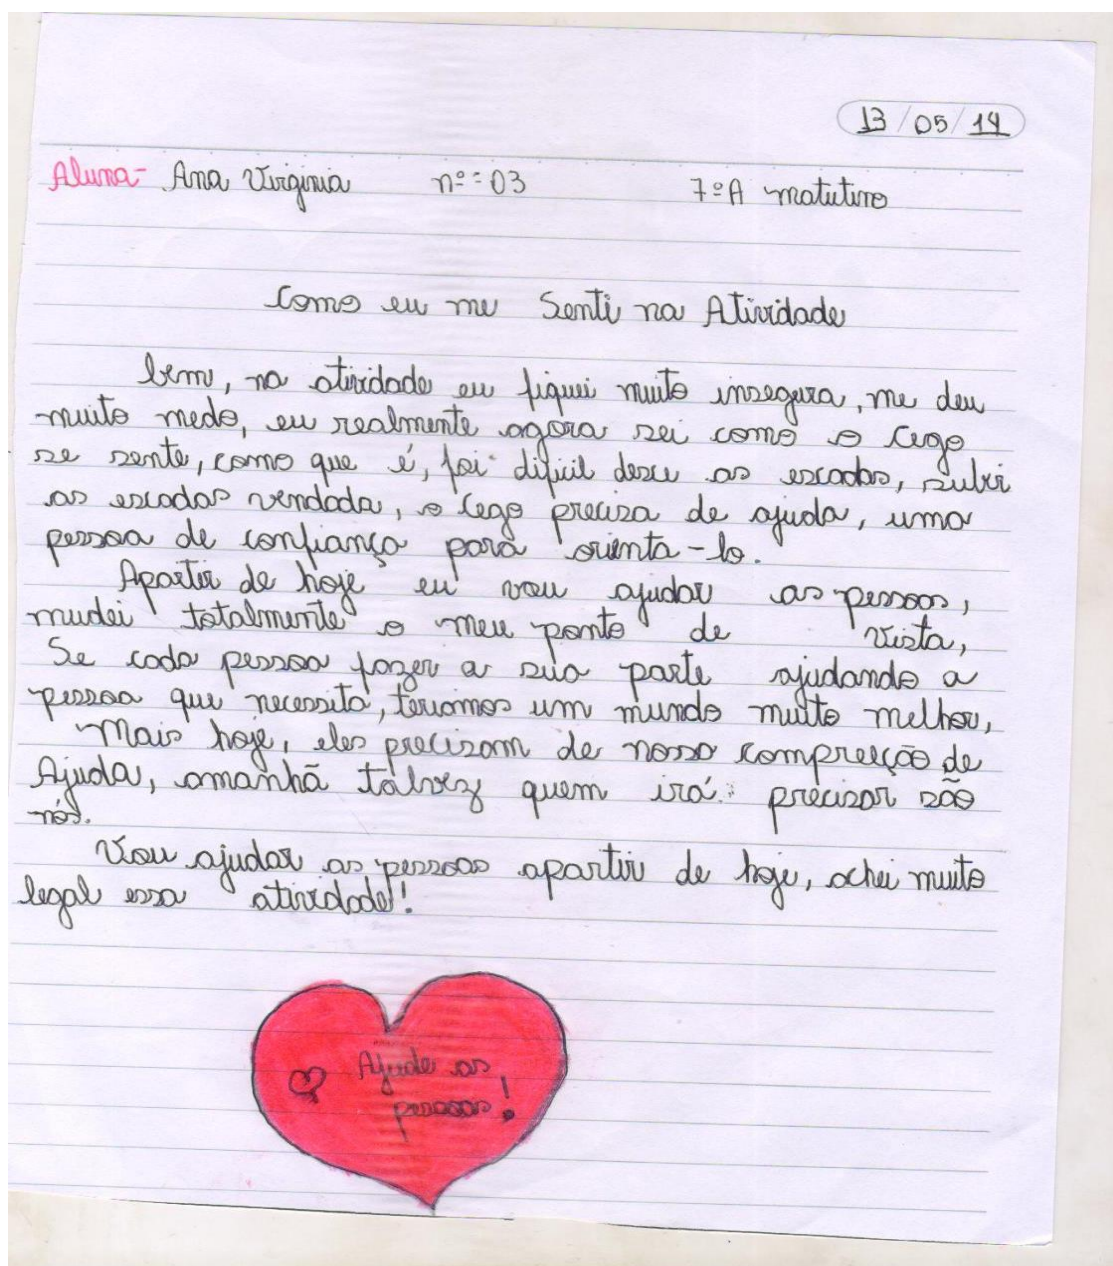 13/05/14
Aluna- Ana Virginia nº=03 7ºA matutino
Como eu me Senti na Atividade
bem, na atividade eu fiquei muito insegura, me deu
muito medo, eu realmente agora sei como o cego
se sente, como que é, foi dificil desce as escadas, subir
as escadas vendada, o cego precisa de ajuda, uma
pessoa de confiança para orienta-lo.
Apartir de hoje eu vou ajudar as pessoas,
mudei totalmente o meu ponto de vista,
Se cada pessoa fazer a sua parte ajudando a
pessoa que necessita, teriamos um mundo muito melhor,
Mais hoje, eles precisam de nossa compreeção de
Ajuda, amanhã talvez quem irá precisar são
nós.
Vou ajudar as pessoas apartir de hoje, achei muito
legal essa atividade!
Ajude as
pessoas!